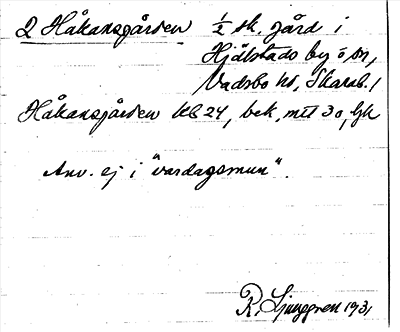 2 Håkansgården ½ sk. gård i
Hjälstads by o sn,
Vadsbo hd, Skarab. l
Håkansgården Kb 24, bek, mtl 30, Jgk
Anv. ej i "vardagsmun".
R. Ljunggren 1931